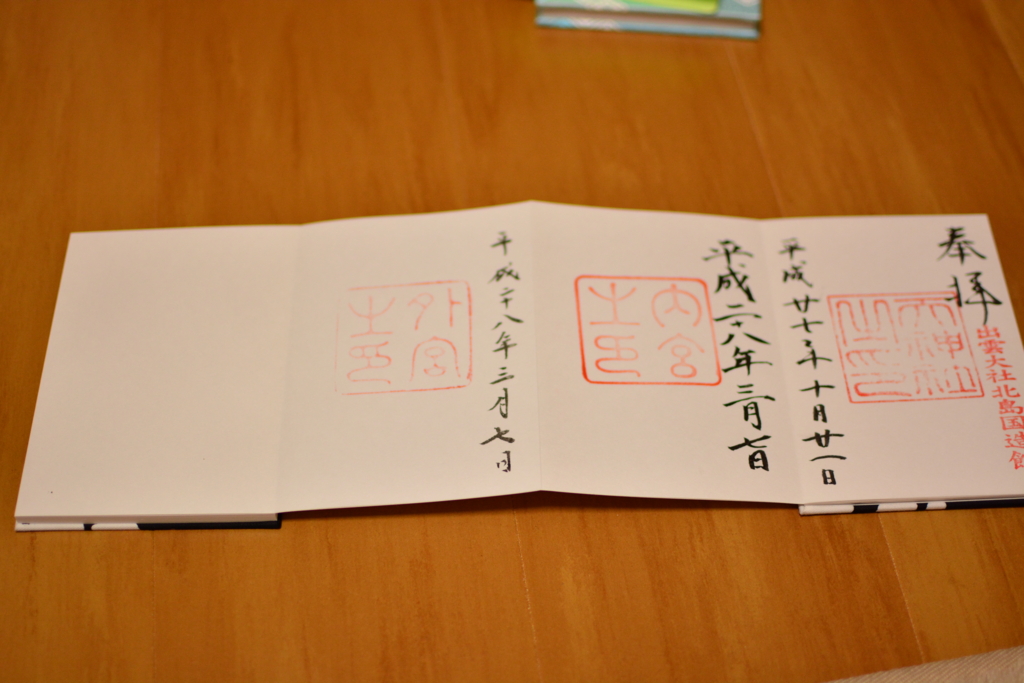 奉拝
出雲大社北島国造館
平成廿七年十月廿一日
平成二十八年三月七日
内宮
之印
平成二十八年三月七日
外宮
之印